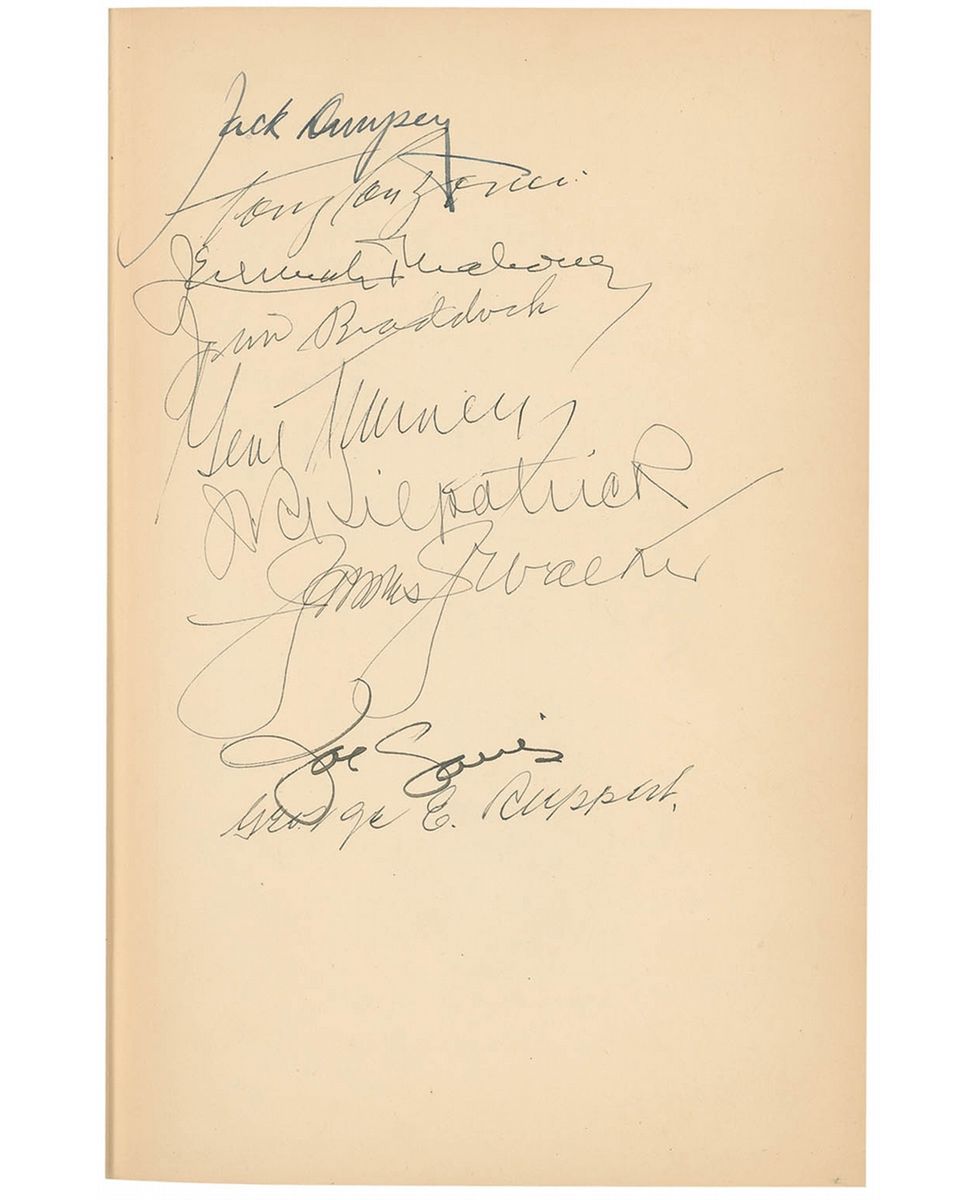 Jack Dempsey
Tony Canzoneri
Jeremiah T Mahoney
Jim Braddock
Gene Tunney
J R Kilpatrick
James J Walker
Joe Louis
George E. Ruppert.